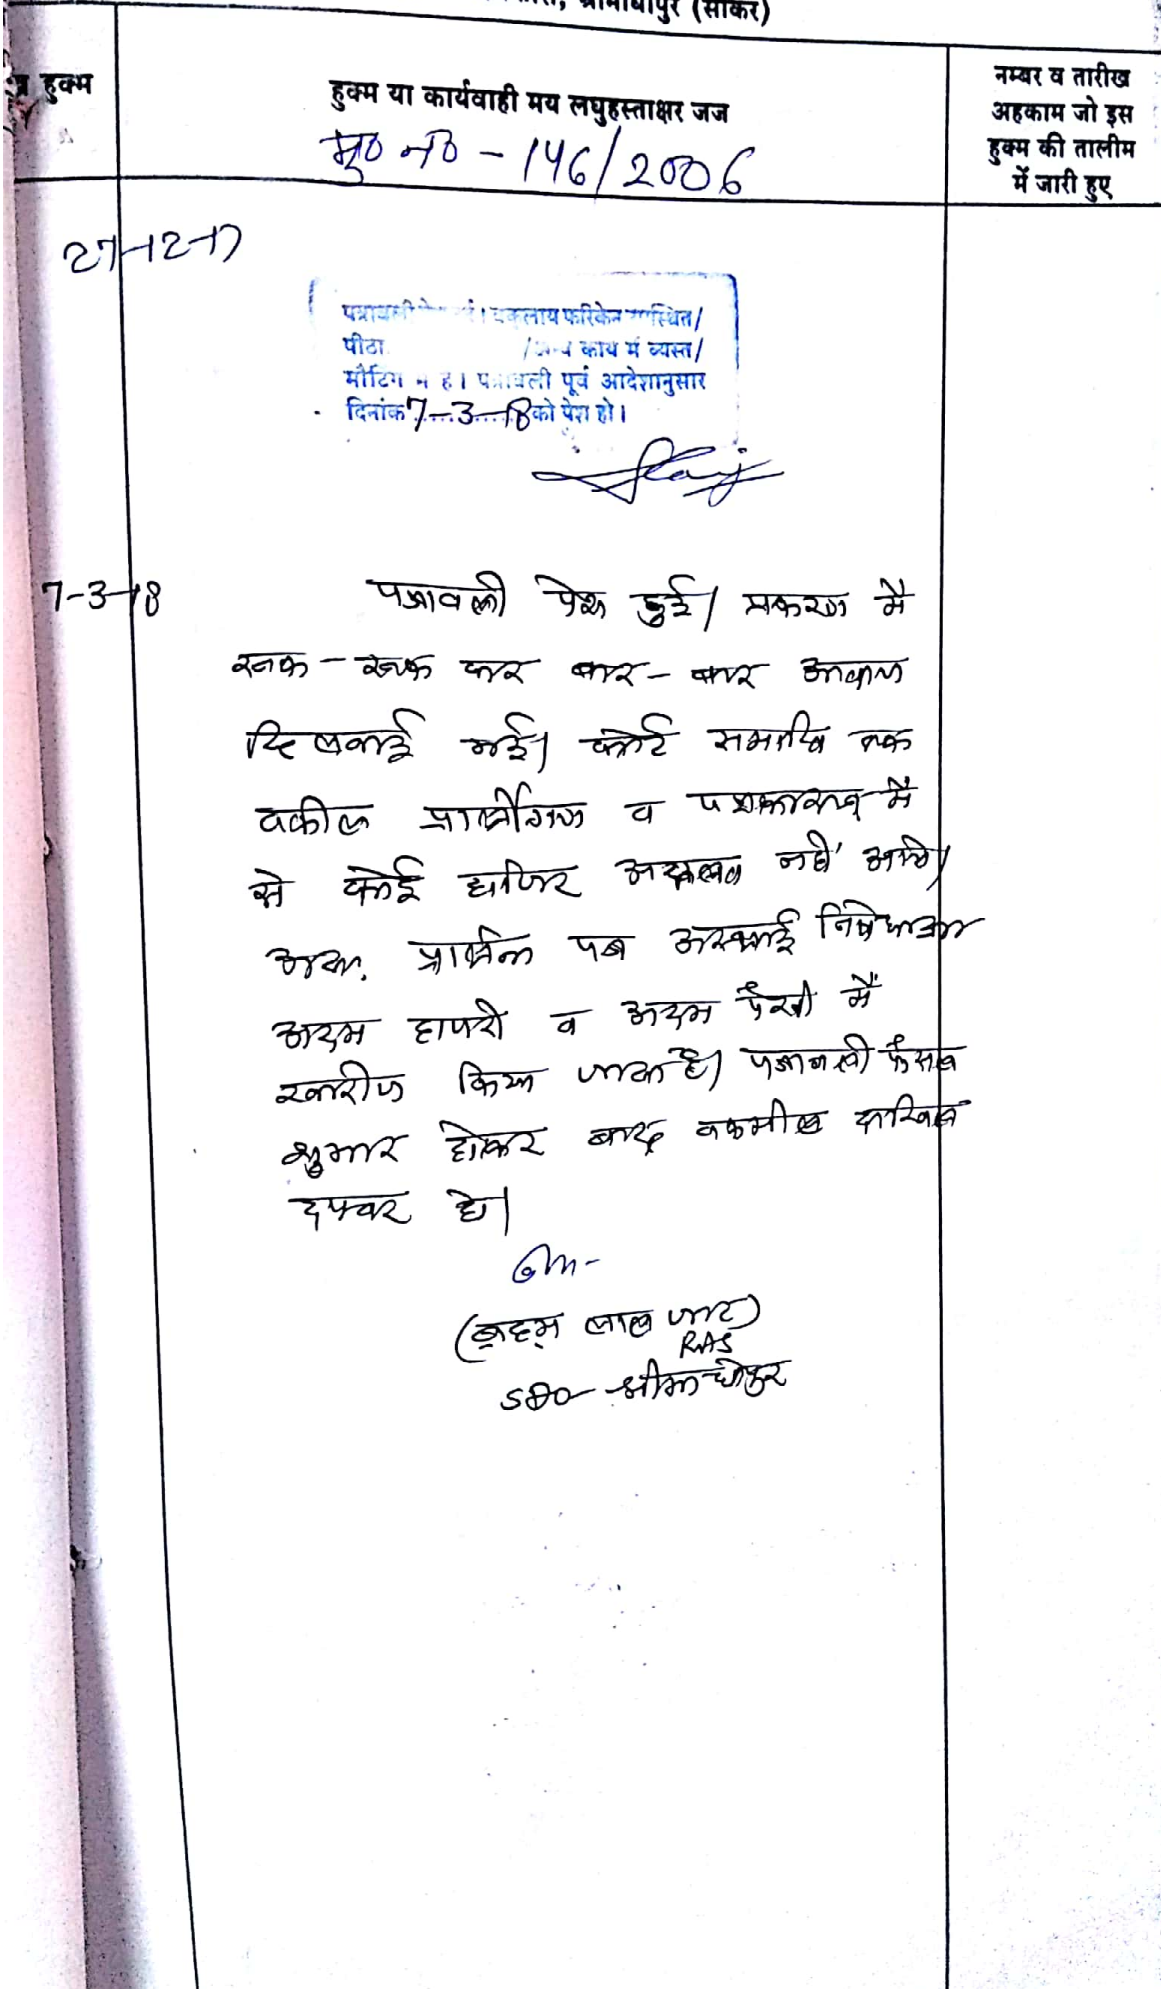 श्रीमाधोपुर (सीकर)
हुक्म
हुक्म या कार्यवाही मय लघुहस्ताक्षर जज
मु० न० - 146/2006
नम्बर व तारीख
अहकाम जो इस
हुक्म की तालीम
में जारी हुए
27-12-17
पत्रावली वकलाय फरिकेन
पीठा / कार्य में व्यस्त/
मीटिंग में है। पत्रावली पूर्व आदेशानुसार
दिनांक 7-3-18 को पेश हो।
7-3-18
पत्रावली पेश हुई। प्रकरण में
रूक-रूक कर बार-बार आवाज
दिलवाई गई। कोर्ट समाप्ति तक
वकील प्रार्थीगण व पक्षकारान् में
से कोई हाजिर अदालत नहीं आये।
अतः प्रार्थना पत्र अस्थाई निषेधाज्ञा
अदम हाजरी व अदम पैरवी में
खारीज किया जाता है। पत्रावली फैसल
शुमार होकर बाद तकमील दाखिल
दफ्तर हो।
(ब्रह्म लाल जाट)
RAS
SDO श्रीमाधोपुर